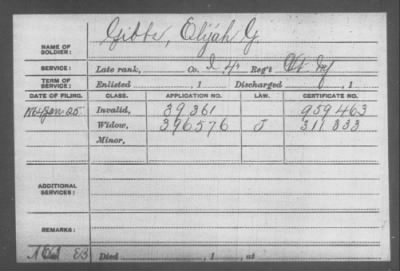 NAME OF SOLDIER: Gibbs, Elijah G.
SERVICE: Late rank, Co. I, 4 Reg't Vt Inf
TERM OF SERVICE: Enlisted , 1 Discharged , 1
DATE OF FILING. CLASS. APPLICATION NO. LAW. CERTIFICATE NO.
Invalid, 39361 959463
Widow, 396576 J 311333
Minor,
ADDITIONAL SERVICES:
REMARKS:
Died , 1 , at